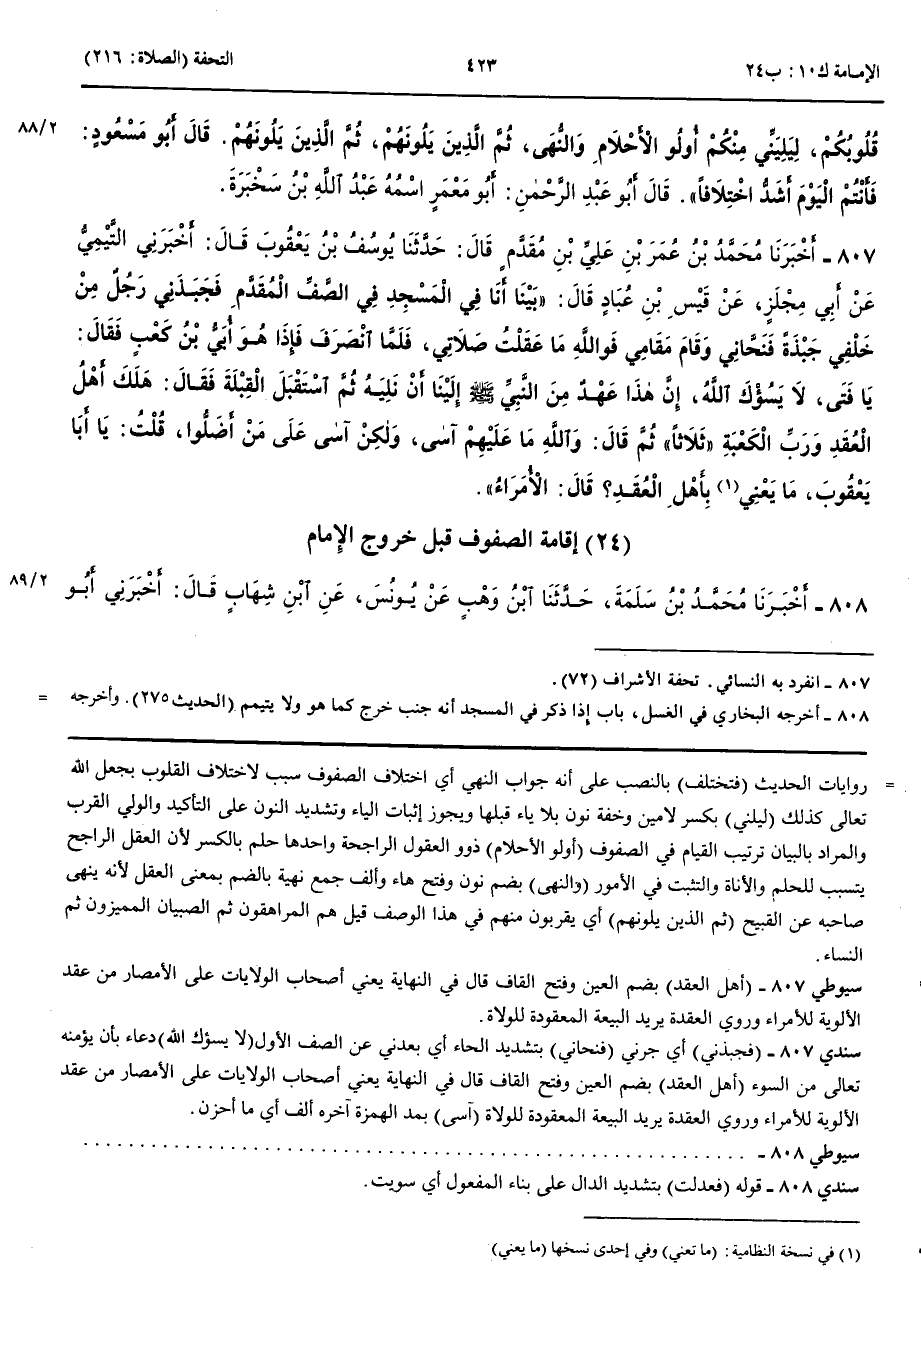 الإمامة ك١٠: ب٢٤
٤٢٣
التحفة (الصلاة: ٢١٦)
قُلُوبُكُمْ، لِيَلِيَنِّي مِنْكُمْ أُولُو الْأَحْلَامِ وَالنُّهَى، ثُمَّ الَّذِينَ يَلُونَهُمْ، ثُمَّ الَّذِينَ يَلُونَهُمْ. قَالَ أَبُو مَسْعُودٍ:
٨٨/٢
فَأَنْتُمْ الْيَوْمَ أَشَدُّ اخْتِلَافاً». قَالَ أَبُو عَبْدِ الرَّحْمٰنِ: أَبُو مَعْمَرٍ اسْمُهُ عَبْدُ ٱللَّهِ بْنُ سَخْبَرَةَ.
٨٠٧ ـ أَخْبَرَنَا مُحَمَّدُ بْنُ عُمَرَ بْنِ عَلِيِّ بْنِ مُقَدَّمٍ قَالَ: حَدَّثَنَا يُوسُفُ بْنُ يَعْقُوبَ قَـالَ: أَخْبَرَنِي التَّيْمِيُّ
عَنْ أَبِي مِجْلَزٍ، عَنْ قَيْسِ بْنِ عُبَادٍ قَالَ: «بَيْنَا أَنَا فِي الْمَسْجِدِ فِي الصَّفِّ الْمُقَدَّمِ فَجَبَذَنِي رَجُلٌ مِنْ
خَلْفِي جَبْذَةً فَنَحَّانِي وَقَامَ مَقَامِي فَوَاللَّهِ مَا عَقَلْتُ صَلَاتِي، فَلَمَّا ٱنْصَرَفَ فَإِذَا هُـوَ أُبَيُّ بْنُ كَعْبٍ فَقَالَ:
يَا فَتَى، لَا يَسُؤْكَ ٱللَّهُ، إِنَّ هٰذَا عَهْدٌ مِنَ النَّبِيِّ ﷺ إِلَيْنَا أَنْ نَلِيَهُ ثُمَّ ٱسْتَقْبَلَ الْقِبْلَةَ فَقَالَ: هَلَكَ أَهْلُ
الْعُقَدِ وَرَبِّ الْكَعْبَةِ «ثَلَاثاً» ثُمَّ قَالَ: وَٱللَّهِ مَا عَلَيْهِمْ آسَى، وَلٰكِنْ آسَى عَلَى مَنْ أَضَلُّوا، قُلْتُ: يَا أَبَا
يَعْقُوبَ، مَا يَعْنِي(١) بِأَهْلِ الْعُقَـدِ؟ قَالَ: الْأُمَرَاءُ».
(٢٤) إقامة الصفوف قبل خروج الإمام
٨٠٨ ـ أَخْبَـرَنَا مُحَمَّـدُ بْنُ سَلَمَةَ، حَـدَّثَنَا ٱبْنُ وَهْبٍ عَنْ يُـونُسَ، عَنِ ٱبْنِ شِهَابٍ قَـالَ: أَخْبَرَنِي أَبُـو
٨٩/٢
٨٠٧ ـ انفرد به النسائي. تحفة الأشراف (٧٢).
٨٠٨ ـ أخرجه البخاري في الغسل، باب إذا ذكر في المسجد أنه جنب خرج كما هو ولا يتيمم (الحديث ٢٧٥). وأخرجه =
= روايات الحديث (فتختلف) بالنصب على أنه جواب النهي أي اختلاف الصفوف سبب لاختلاف القلوب بجعل الله
تعالى كذلك (ليلني) بكسر لامين وخفة نون بلا ياء قبلها ويجوز إثبات الياء وتشديد النون على التأكيد والولي القرب
والمراد بالبيان ترتيب القيام في الصفوف (أولو الأحلام) ذوو العقول الراجحة واحدها حلم بالكسر لأن العقل الراجح
يتسبب للحلم والأناة والتثبت في الأمور (والنهى) بضم نون وفتح هاء وألف جمع نهية بالضم بمعنى العقل لأنه ينهى
صاحبه عن القبيح (ثم الذين يلونهم) أي يقربون منهم في هذا الوصف قيل هم المراهقون ثم الصبيان المميزون ثم
النساء.
سيوطي ٨٠٧ ـ (أهل العقد) بضم العين وفتح القاف قال في النهاية يعني أصحاب الولايات على الأمصار من عقد
الألوية للأمراء وروي العقدة يريد البيعة المعقودة للولاة.
سندي ٨٠٧ ـ (فجبذني) أي جرني (فنحاني) بتشديد الحاء أي بعدني عن الصف الأول(لا يسؤك الله)دعاء بأن يؤمنه
تعالى من السوء (أهل العقد) بضم العين وفتح القاف قال في النهاية يعني أصحاب الولايات على الأمصار من عقد
الألوية للأمراء وروي العقدة يريد البيعة المعقودة للولاة (آسى) بمد الهمزة آخره ألف أي ما أحزن.
سيوطي ٨٠٨ ـ . . . . . . . . . . . . . . . . . . . . . . . . . . . . . . . . . . . . . . . .
سندي ٨٠٨ ـ قوله (فعدلت) بتشديد الدال على بناء المفعول أي سويت.
(١) في نسخة النظامية: (ما تعني) وفي إحدى نسخها (ما يعني)